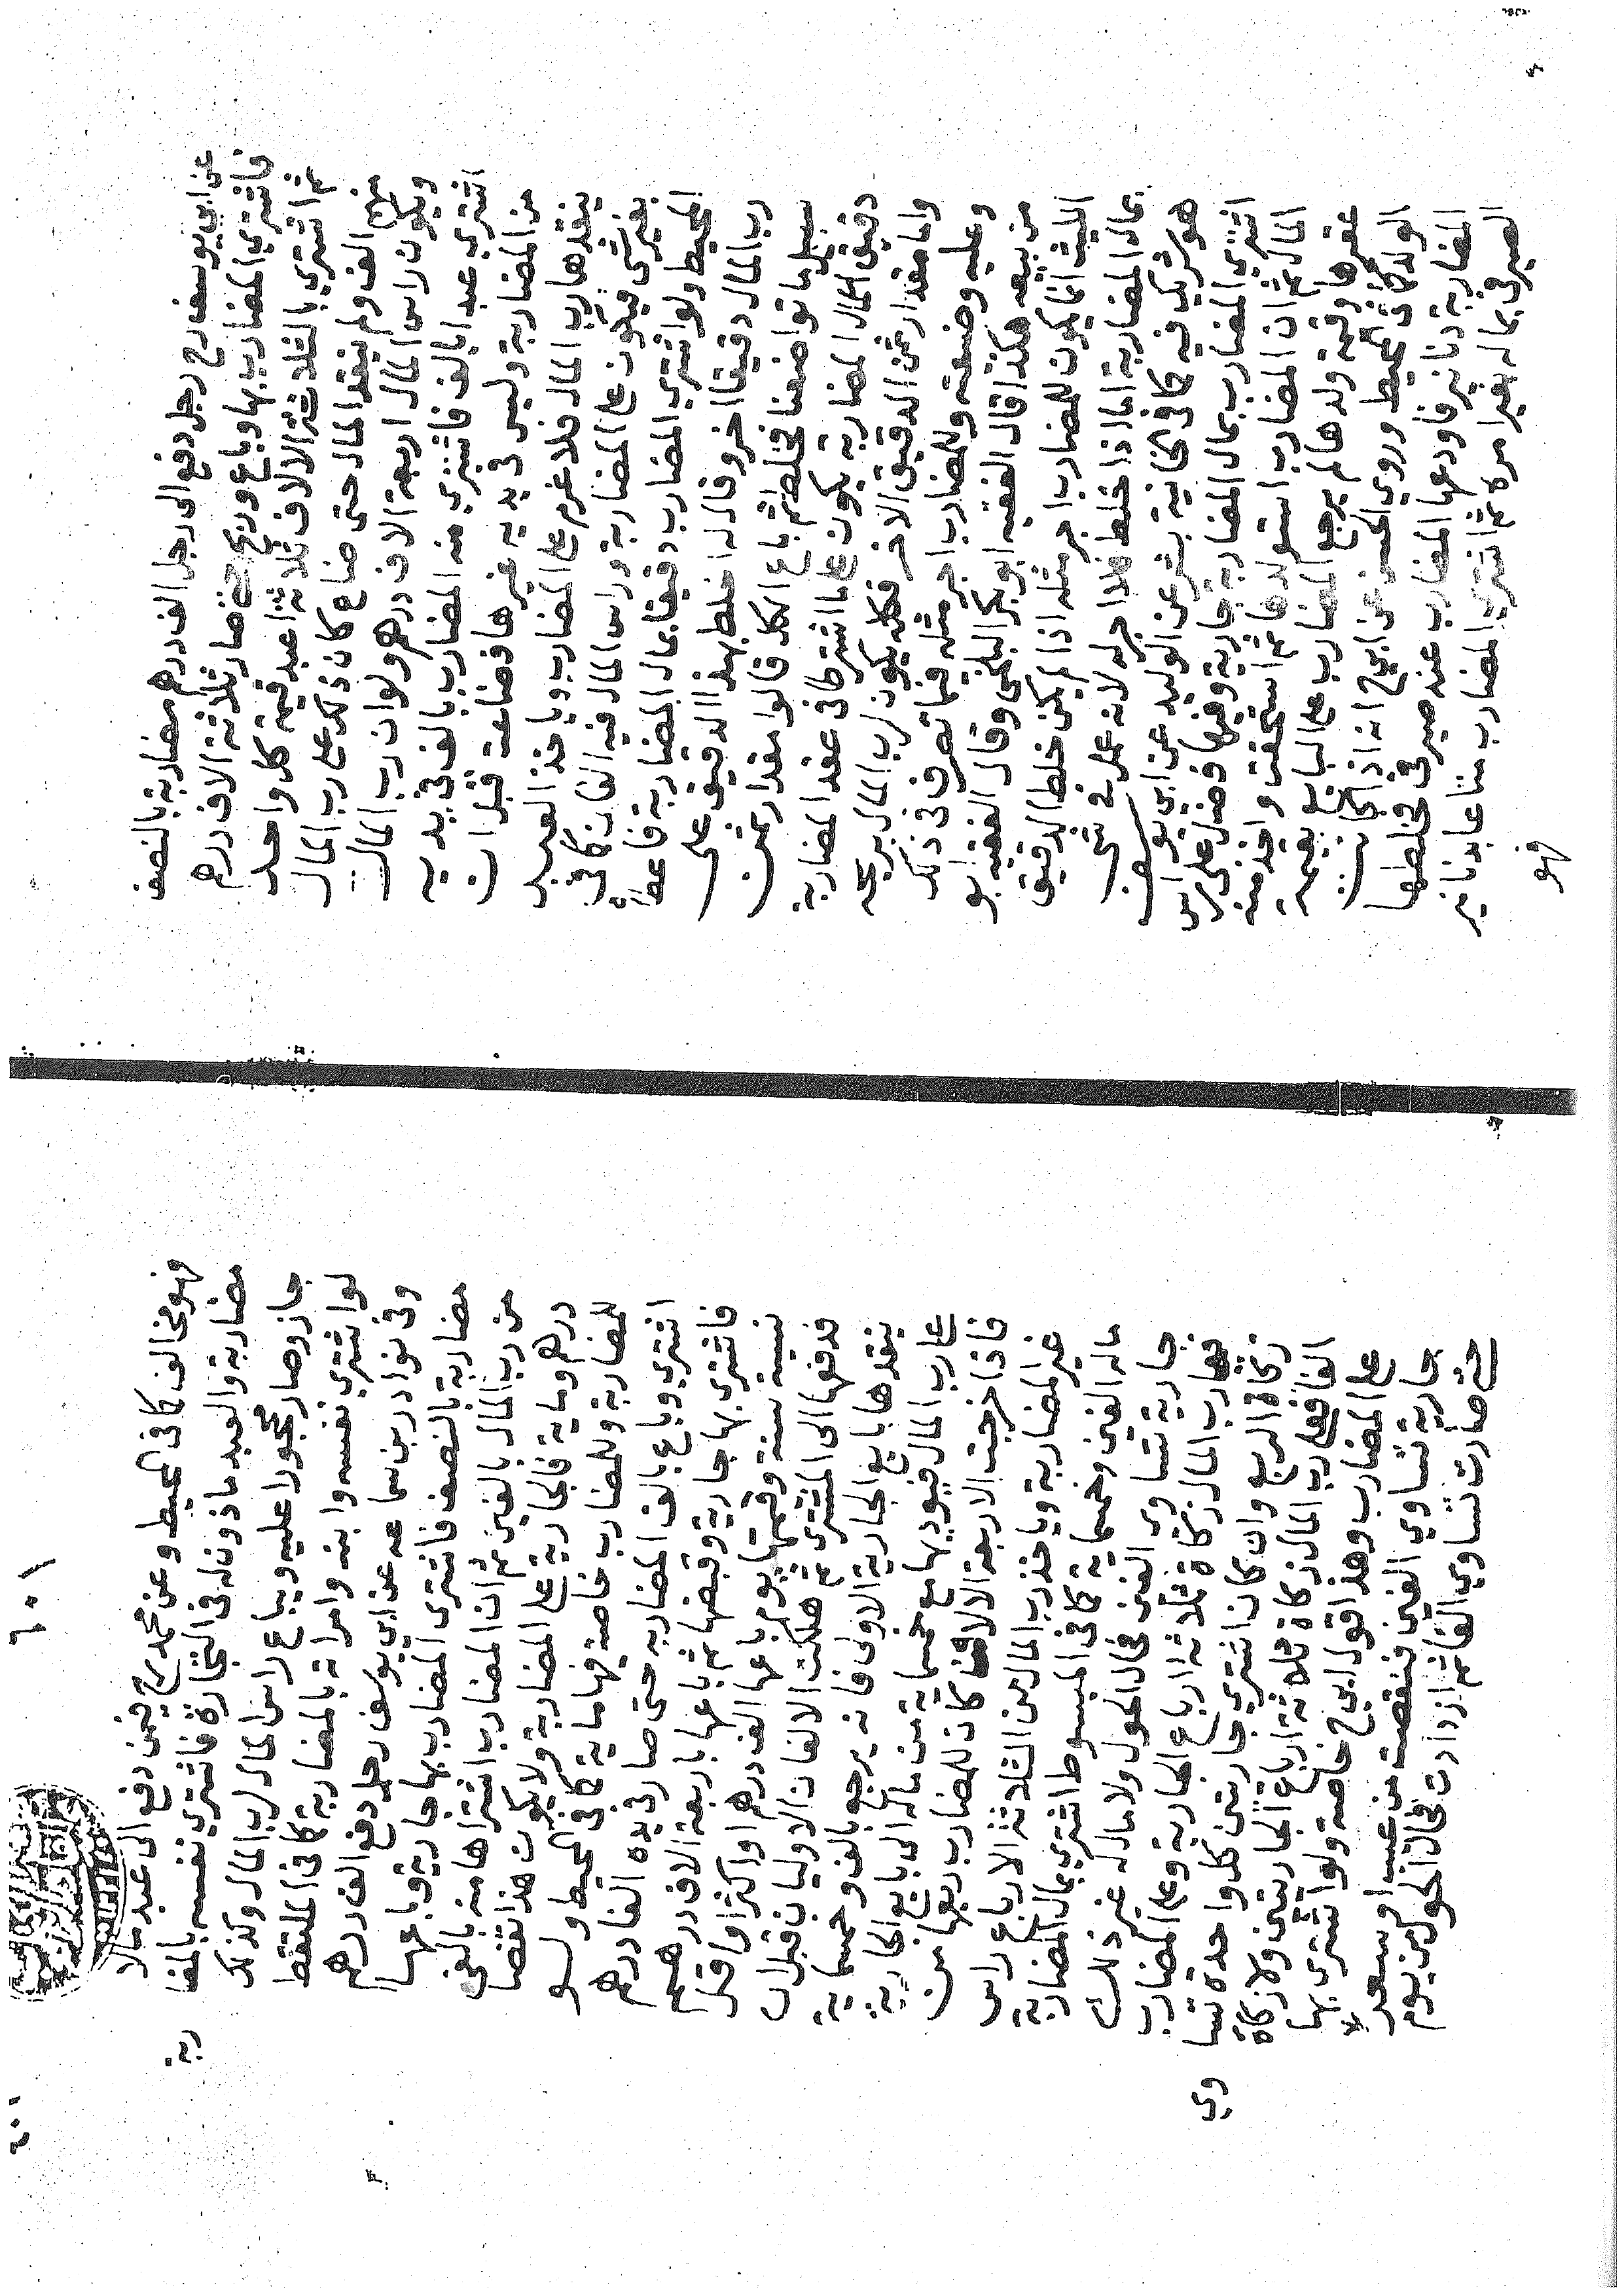 عن ابي يوسف رح رجل دفع الى رجل الف درهم مضاربة بالنصف
فاشتري المضارب بها وباع وربح حتى صار ثلاثة الاف درهم
ثم اشتري بالثلاثة الالاف ثلاثة اعبد قيمة كل واحد
منهم الف ولم ينقد المال حتى ضاع كان ذلك على رب المال
ويكون راس المال اربعة الاف درهم ولو ان رب المال
اشتري عبدا بالف فاشتري منه المضارب بالف في يديه
من المضاربة وليس في يديه غيرها فضاعت قبل ان
ينقدها رب المال فلا غرم على المضارب وياخذ العبد
بغير شي فيكون على المضاربة وراس المال فيه الفان كما في
المحيط ولو اشتري المضارب دقيقا بمال المضاربة فاعطاه
رب المال دقيقا اخر وقال له اخلط بهذا الدقيق على
سبيل ما تواضعنا فخلط ثم باع الكل قالوا مقدار ثمن
دقيق المال المضاربة يكون على ما اشترطا في عقد المضاربة
واما مقدار ثمن الدقيق الاخر فكله يكون لرب المال ربحه
وعليه وضيعته وللمضارب اجر مثله فيما تصرف في ذلك
من بيعه هكذا قال الفقيه ابو بكر البلخي وقال الفقيه ابو
الليث انما يكون للمضارب اجر مثله اذا لم يكن خلط الدقيق
بمال المضاربة اما اذا خلط فلا اجر له لانه عمل في شي
هو شريك فيه كما في الخانية بشر عن الوليد عن ابي يوسف
اشتري المضارب بمال المضاربة جارية وفيها فضل على راس
المال ثم ان المضارب استولدها ثم استحقت واخذ منه
عقرها وقيمة ولدها لم يرجع المضارب على البايع بقيمة
الولد كما في المحيط وروي الحسن عن ابي ح انه اذا كانت
المضاربة دنانير فاودعها المضارب عند صيرفي فخلطها
الصيرفي بماله بغير امره ثم اشتري المضارب متاعا بدنانير
فهو
١٠٦
فهو مخالف كما في المحيط وعن محمد رح فيمن دفع الى عبد مالا
مضاربة والعبد ماذون له في التجارة فاشتري نفسه بالمضا ربة
جاز وصار محجورا عليه ويباع راس المال لرب المال وكذلك
لو اشتري نفسه وابنه وامراته بالمضاربة كما في الملتقط
وفي نوادر بن سماعه عن ابي يوسف رجل دفع الف درهم
مضاربة بالنصف فاشتري المضارب بها جارية وباعها
من رب المال بالفين ثم ان المضارب اشتراها منه بالفي
درهم وماية فالجارية على المضاربة ولا يكون هذا نقضا
للمضاربة وللمضارب خاصة فيها ماية كما في المحيط ولو
اشتري وباع بالف المضاربه حتى صار في يده الفا درهم
فاشتري بها جارية وقبضها ثم باعها باربعة الاف درهم
نسية سنة وقيمتها يوم باعها الف درهم او اكثر او اقل
فدفعها الى المشتري ثم هلكت الالفان الاوليان قبل ان
ينقدها بايع الجارية الاولى فانه يرجع بالف وخمسماية
على رب المال فيوديها مع خمسماية من ماله الى بايع الجارية
فاذا خرجت الاربعة الالاف كان للمضارب ربعها من
غير المضاربة وياخذ رب المال من الثلاثة الارباع راس
ماله الفين وخمسماية كما في المبسوط اشتري بمال المضاربة
جارية تساوي الفين فحال الحول ولا مال له غير ذلك
فعلى رب المال زكاة ثلاثة ارباع الجارية وعلى المضارب
زكاة الربع وان كان اشتري جاريتين كل واحدة تسا وي
الفا فعلى رب المال زكاة ثلاثة ارباع الجاريتين ولا زكاة
على المضارب وهذا قول ابي ح خاصة ولو اشتري بها
جارية تساوي الفين فنقصت من عيب او سعر
حتى صارت تساوي الفا ثم ازدادت فحال الحول من يوم